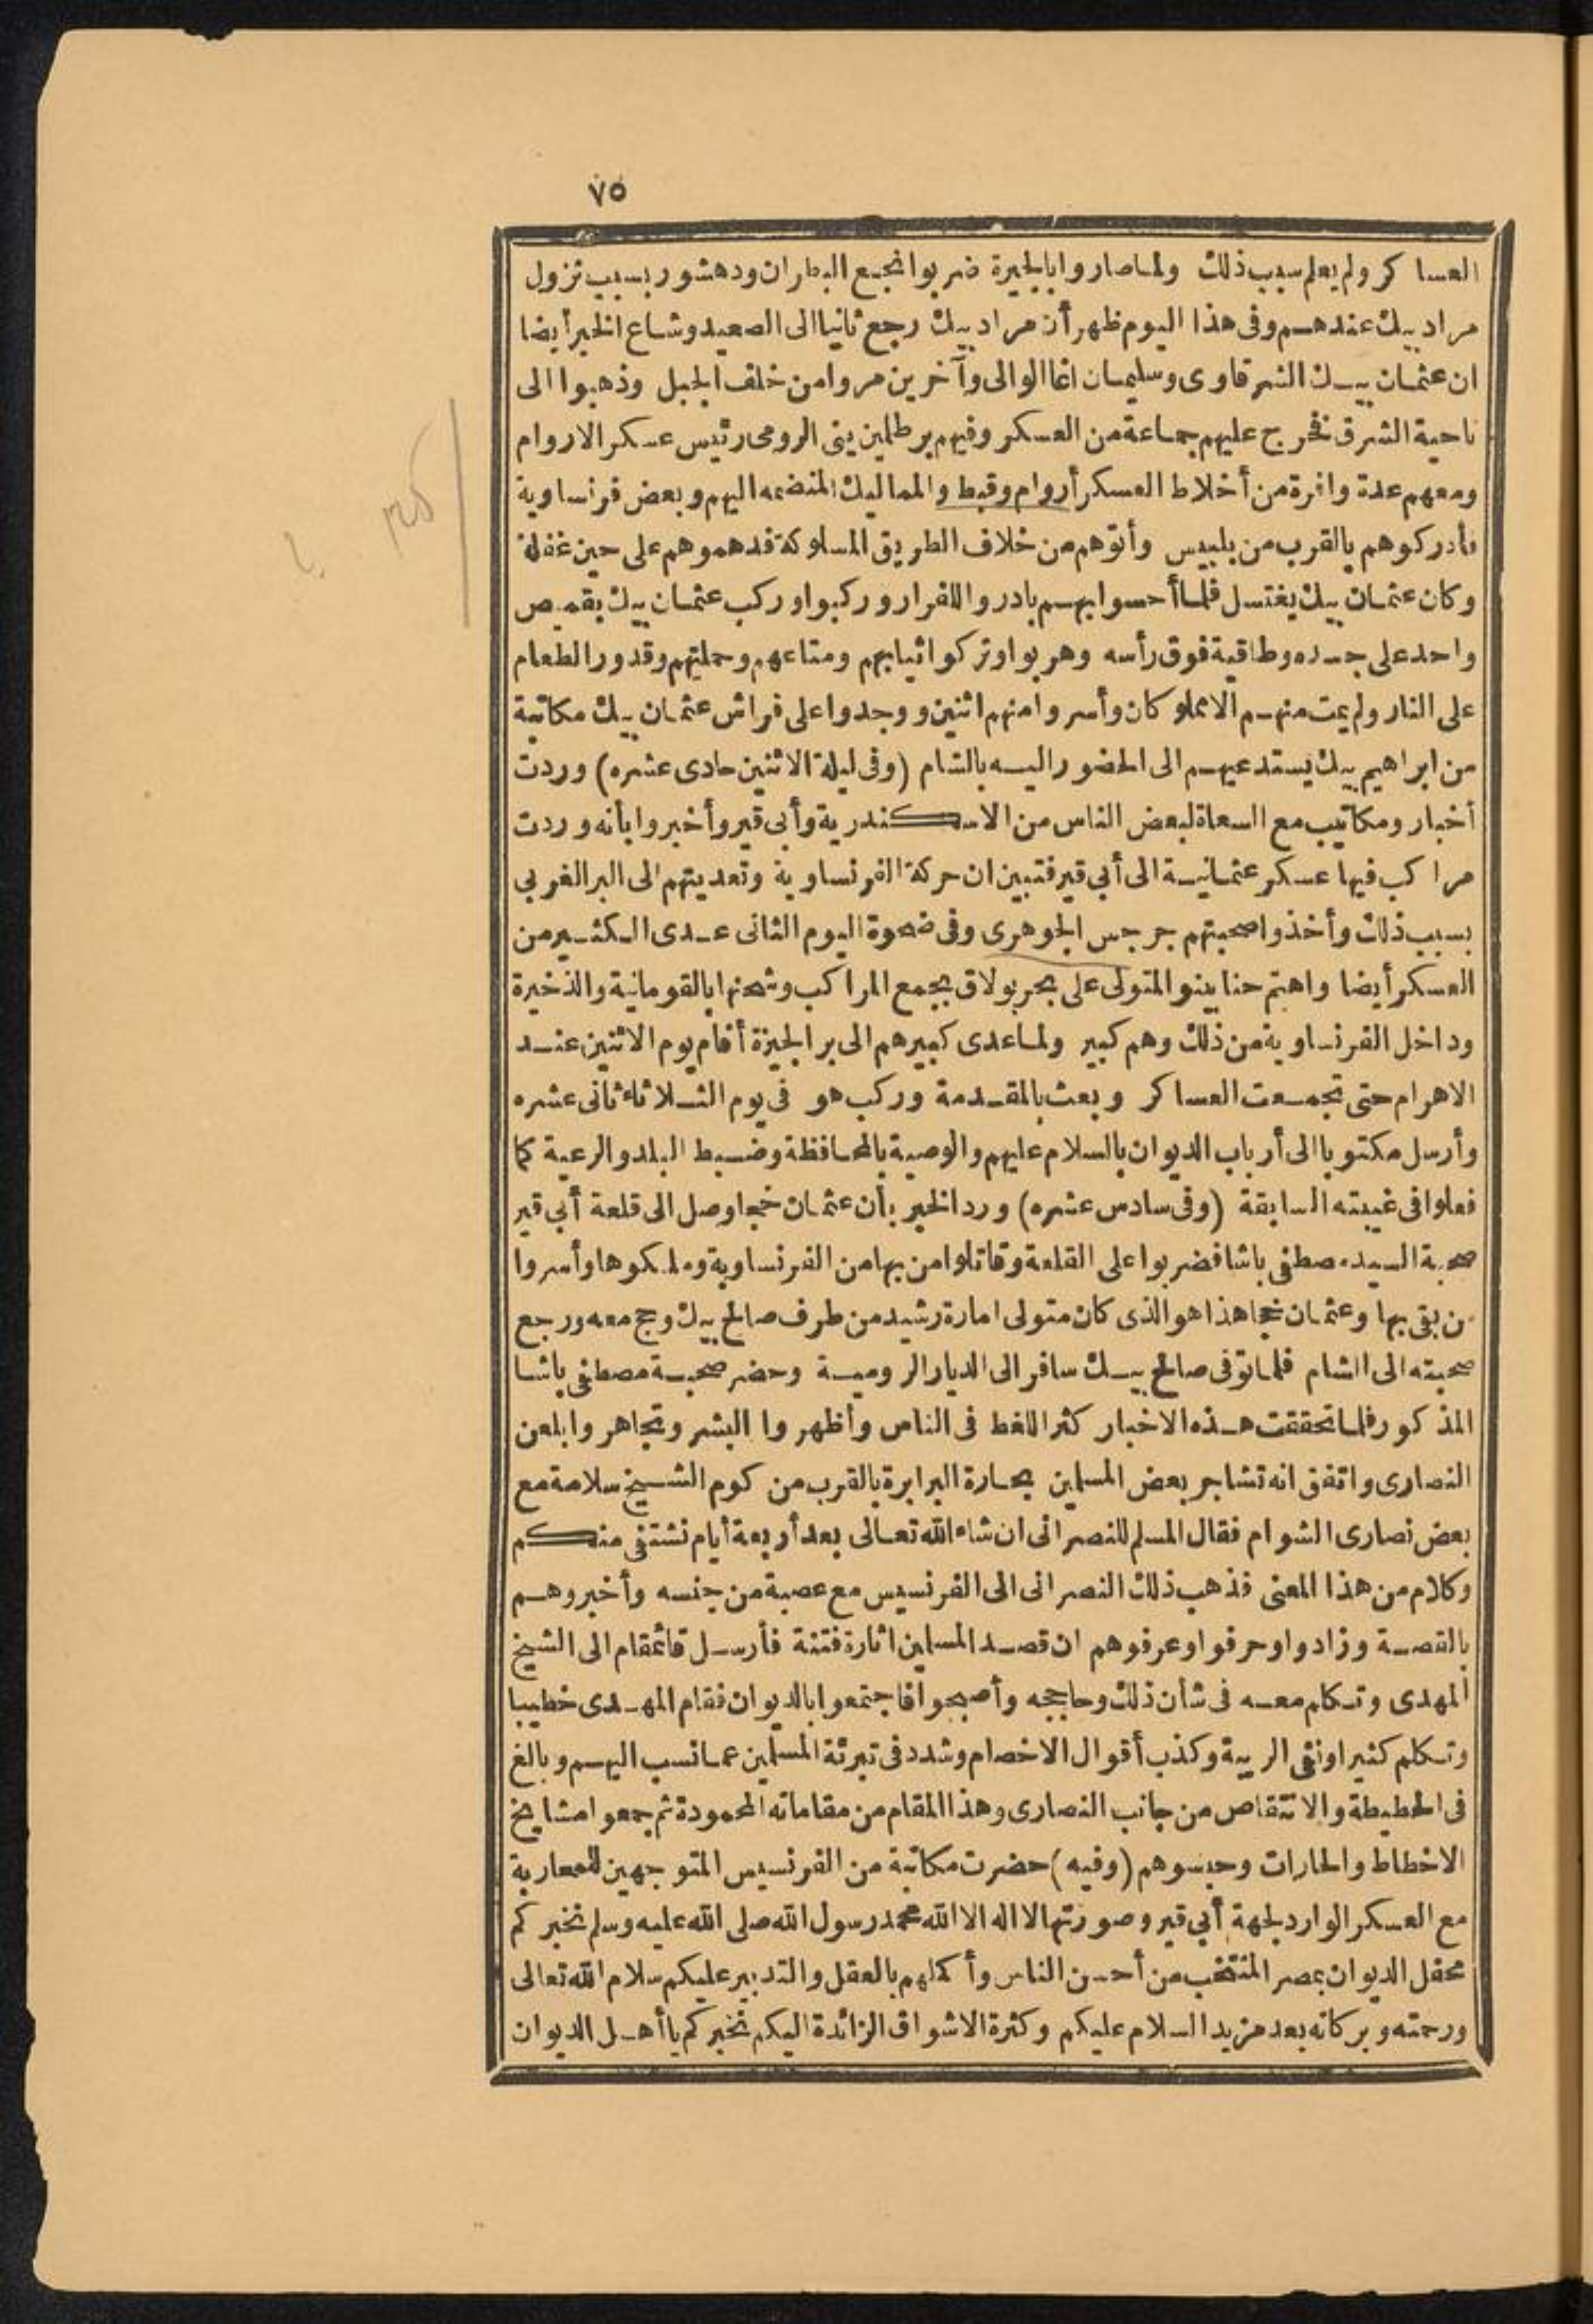 ٧٥
العساكر ولم يعلم سبب ذلك ولما صاروا بالجيزة ضربوا نجع البطران ودهشور بسبب نزول
مراد بيك عندهم وفى هذا اليوم ظهر أن مراد بيك رجع ثانيا الى الصعيد وشاع الخبر أيضا
ان عثمان بيك الشرقاوى وسليمان اغا الوالى وآخرين مروا من خلف الجبل وذهبوا الى
ناحية الشرق فخرج عليهم جماعة من العسكر وفيهم برطلمين ينى الرومى رئيس عسكر الاروام
ومعهم عدة وافرة من أخلاط العسكر أروام وقبط والمماليك المنضمه اليهم وبعض فرنساوية
فأدركوهم بالقرب من بلبيس وأتوهم من خلاف الطريق المسلوكة فدهموهم على حين غفلة
وكان عثمان بيك يغتسل فلما أحسوا بهم بادروا للفرار وركبوا وركب عثمان بيك بقميص
واحد على جسده وطاقية فوق رأسه وهربوا وتركوا ثيابهم ومتاعهم وحملتهم وقدور الطعام
على النار ولم يمت منهم الا مملوكان وأسروا منهم اثنين ووجدوا على فراش عثمان بيك مكاتبة
من ابراهيم بيك يستدعيهم الى الحضور اليه بالشام (وفى ليلة الاثنين حادى عشره) وردت
أخبار ومكاتيب مع السعاة لبعض الناس من الاسكندرية وأبى قير وأخبروا بأنه وردت
مراكب فيها عسكر عثمانية الى أبى قير فتبين ان حركة الفرنساوية وتعديتهم الى البر الغربى
بسبب ذلك وأخذوا صحبتهم جرجس الجوهرى وفى ضحوة اليوم الثانى عدى الكثير من
العسكر أيضا واهتم حنا بينو المتولى على بحر بولاق بجمع المراكب وشحنها بالقومانية والذخيرة
وداخل الفرنساوية من ذلك وهم كبير ولما عدى كبيرهم الى بر الجيزة أقام يوم الاثنين عند
الاهرام حتى تجمعت العساكر وبعث بالمقدمة وركب هو فى يوم الثلاثاء ثانى عشره
وأرسل مكتوبا الى أرباب الديوان بالسلام عليهم والوصية بالمحافظة وضبط البلد والرعية كما
فعلوا فى غيبته السابقة (وفى سادس عشره) ورد الخبر بأن عثمان خجا وصل الى قلعة أبى قير
صحبة السيد مصطفى باشا فضربوا على القلعة وقاتلوا من بها من الفرنساوية وملكوها وأسروا
من بقى بها وعثمان خجا هذا هو الذى كان متولى امارة رشيد من طرف صالح بيك وحج معه ورجع
صحبته الى الشام فلما توفى صالح بيك سافر الى الديار الرومية وحضر صحبة مصطفى باشا
المذكور فلما تحققت هذه الاخبار كثر اللغط فى الناس وأظهروا البشر وتجاهروا بلعن
النصارى واتفق انه تشاجر بعض المسلمين بحارة البرابرة بالقرب من كوم الشيخ سلامة مع
بعض نصارى الشوام فقال المسلم للنصرانى ان شاء الله تعالى بعد أربعة أيام نشتفى منكم
وكلام من هذا المعنى فذهب ذلك النصرانى الى الفرنسيس مع عصبة من جنسه وأخبروهم
بالقصة وزادوا وحرفوا وعرفوهم ان قصد المسلمين اثارة فتنة فأرسل قائمقام الى الشيخ
المهدى وتكلم معه فى شأن ذلك وحاججه وأصبحوا فاجتمعوا بالديوان فقام المهدى خطيبا
وتكلم كثيرا ونفى الريبة وكذب أقوال الاخصام وشدد فى تبرئة المسلمين عما نسب اليهم وبالغ
فى الحطيطة والانتقاص من جانب النصارى وهذا المقام من مقاماته المحمودة ثم جمعوا مشايخ
الاخطاط والحارات وحبسوهم (وفيه) حضرت مكاتبة من الفرنسيس المتوجهين للمحاربة
مع العسكر الوارد لجهة أبى قير وصورتها لا اله الا الله محمد رسول الله صلى الله عليه وسلم نخبركم
محفل الديوان بمصر المنتخب من أحسن الناس وأكملهم بالعقل والتدبير عليكم سلام الله تعالى
ورحمته وبركاته بعد مزيد السلام عليكم وكثرة الاشواق الزائدة اليكم نخبركم يا أهل الديوان